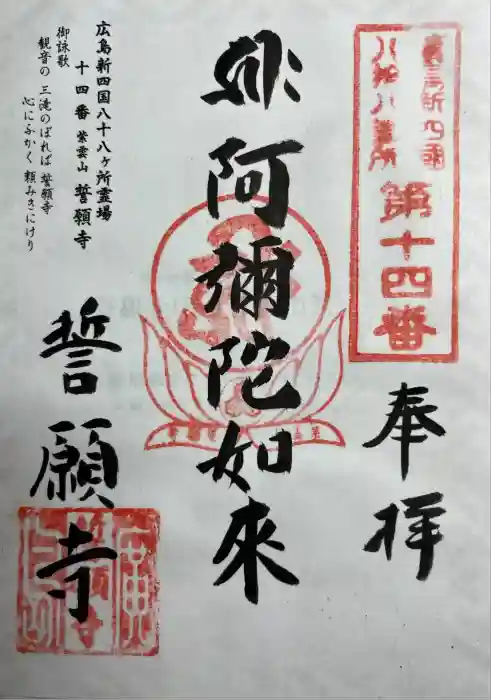 廣島新四国
八拾八箇所
第十四番
奉拝
阿彌陀如來
広島新四国八十八ヶ所霊場
十四番 紫雲山 誓願寺
御詠歌
観音の 三滝のぼれば 誓願寺
心にふかく 頼みきにけり
誓願寺